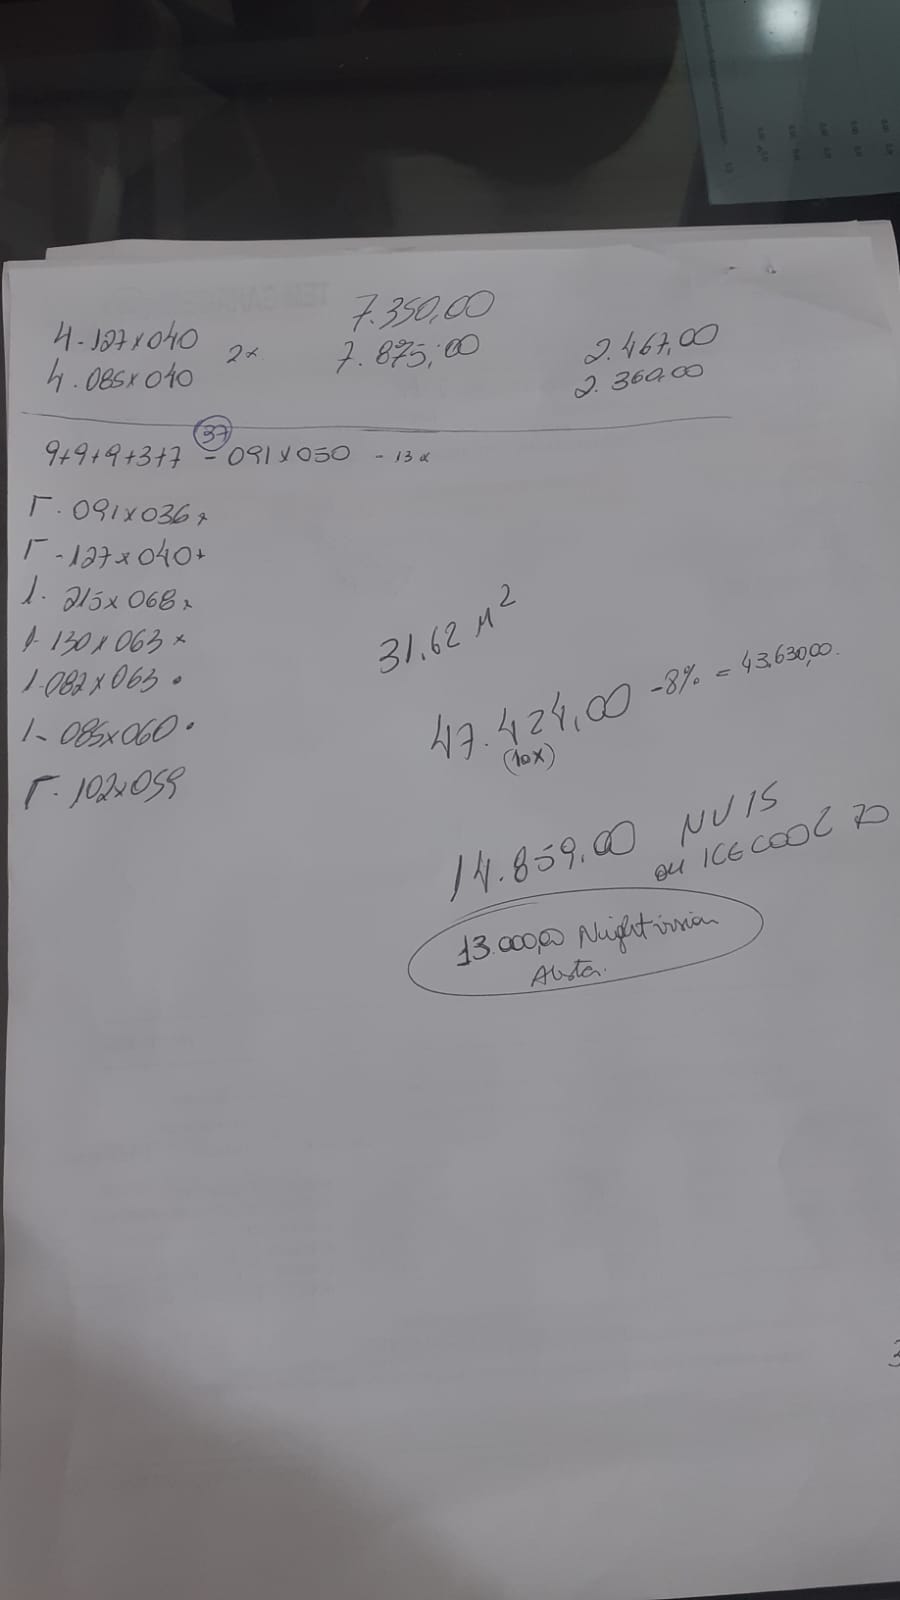 7.350,00
4-127x040
2x
7.875,00
2.467,00
4.085x040
2.360,00
37
9+9+9+3+7 - 091x050 - 13x
1. 091x036x
1-127x040+
1. 215x068x
1-130x063x
1.082x063.
1- 085x060.
1. 102x059
31.62 M²
47.424,00 -8% = 43.630,00.
(10x)
14.859,00 NV15
ou ICECOOL 70
13.000,00 Nightvision